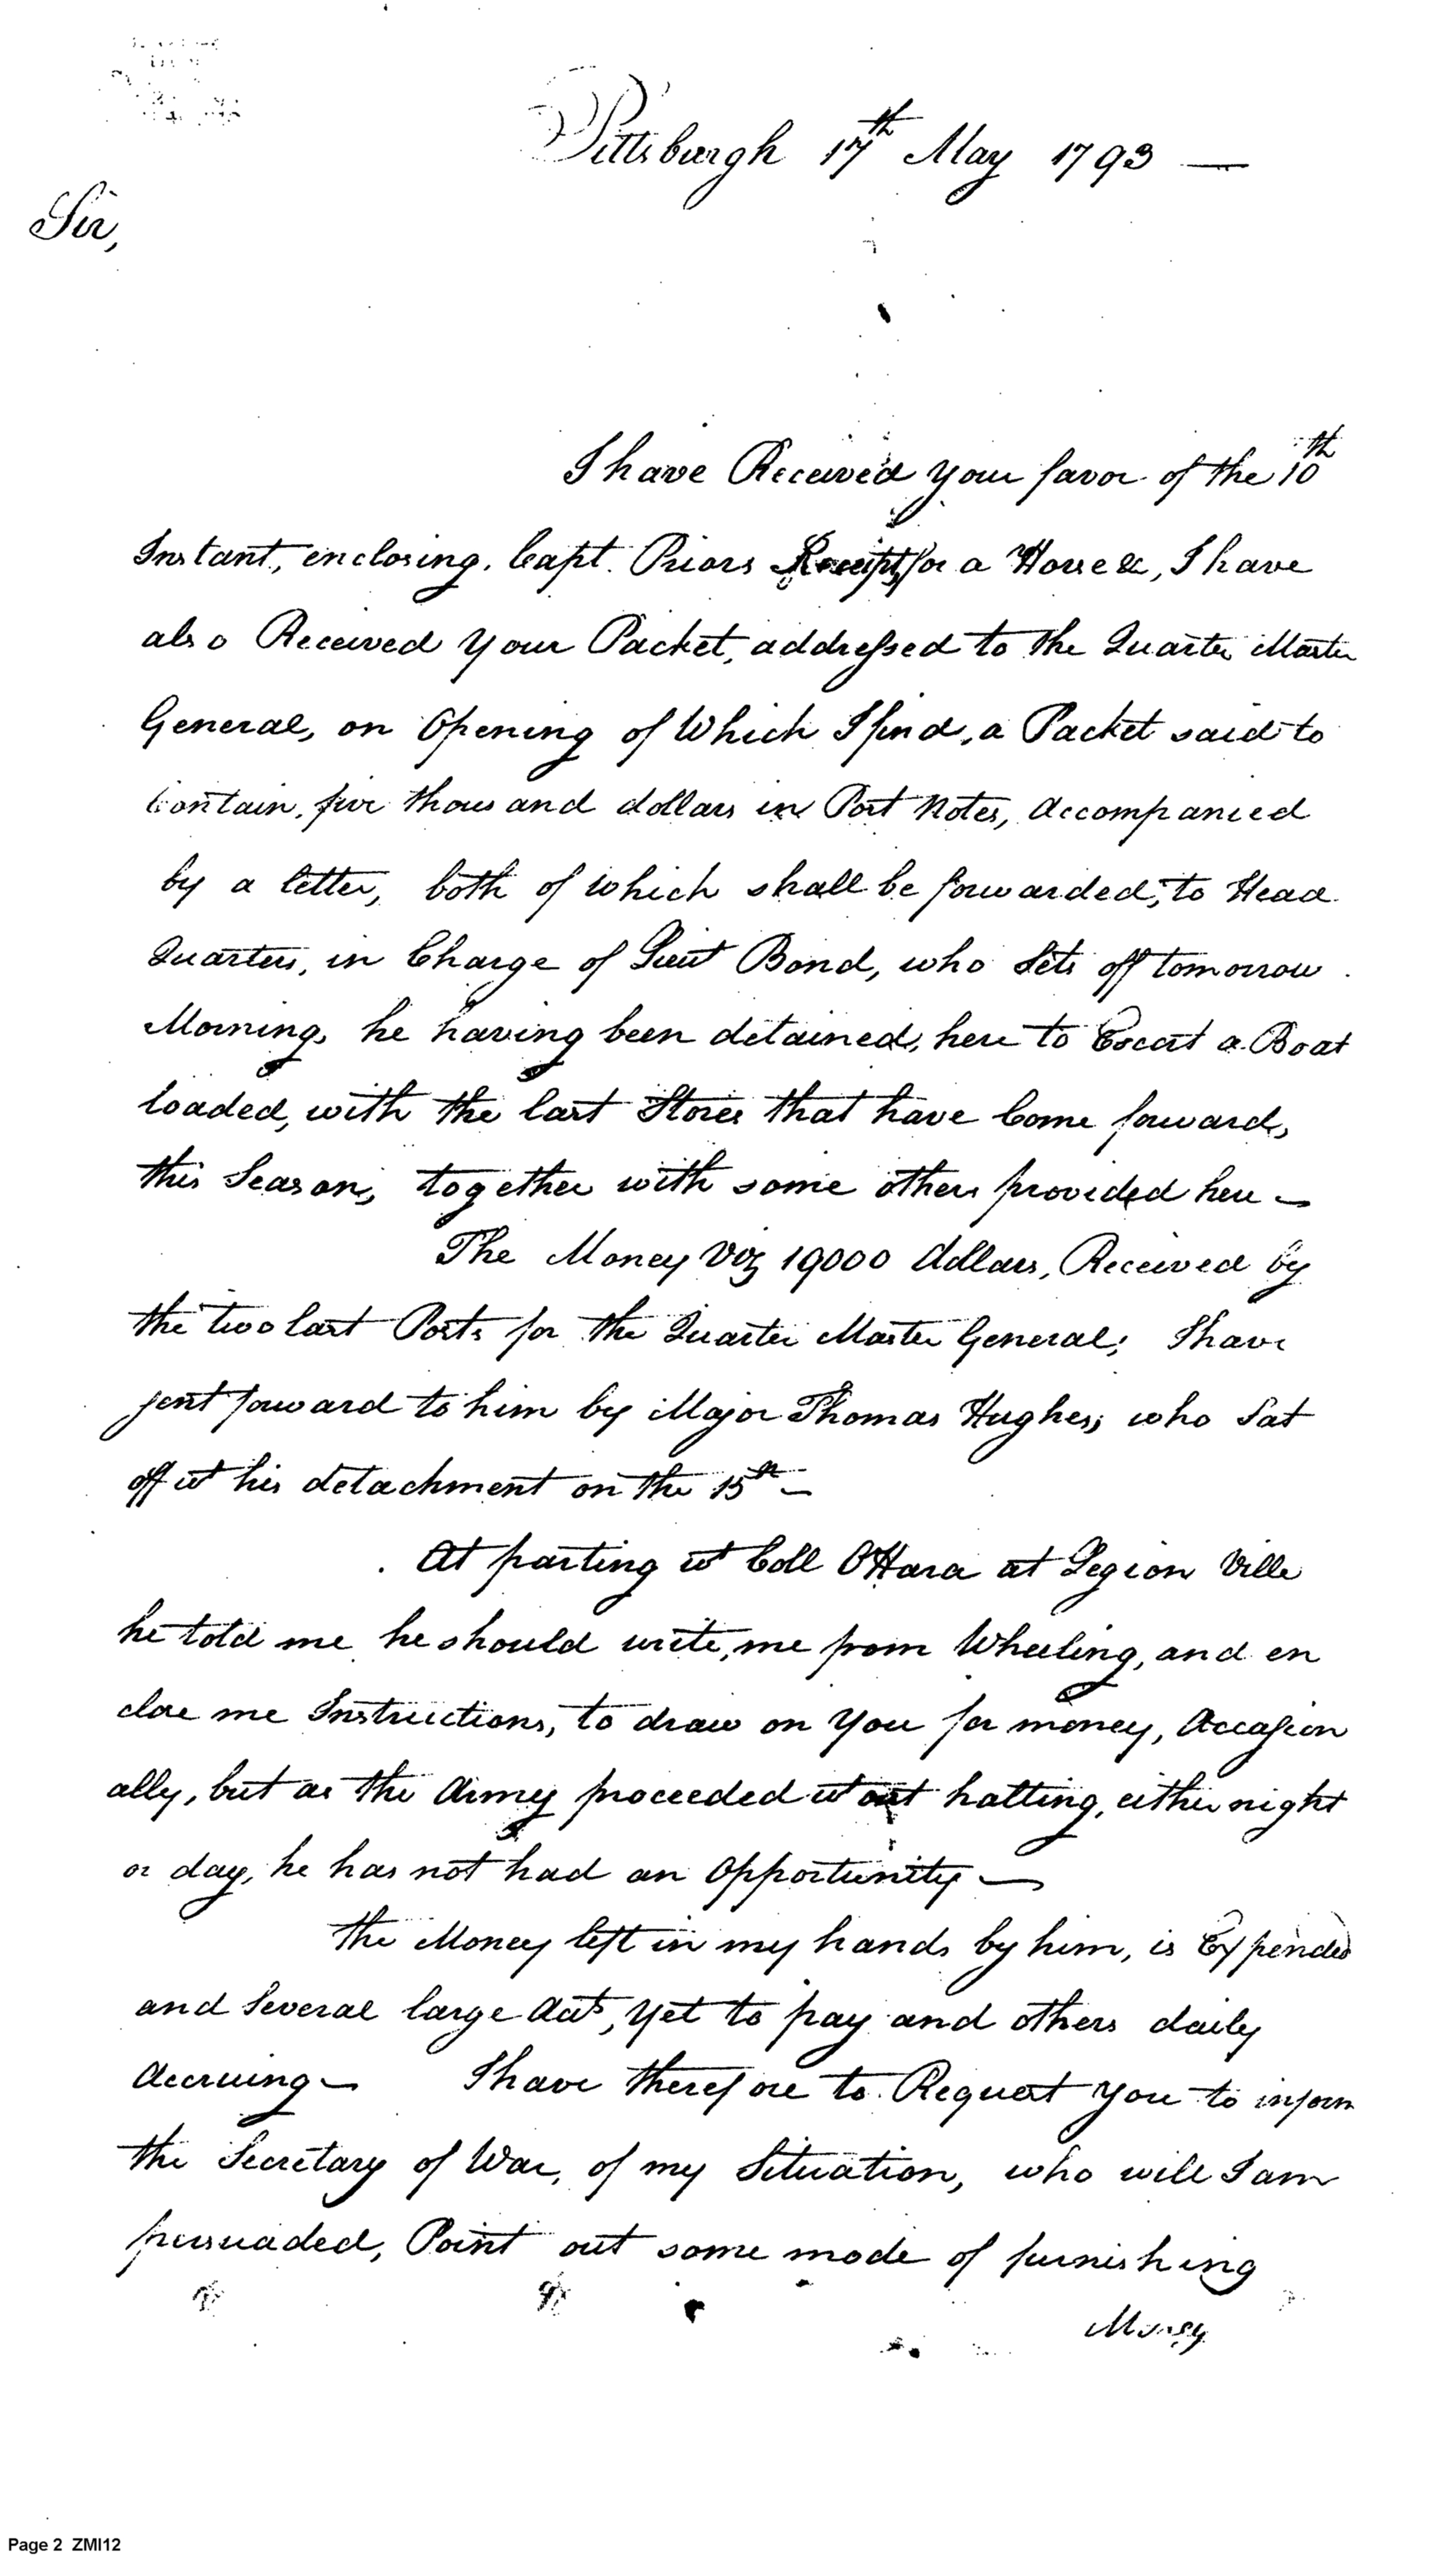 Pittsburgh 17th May 1793 —
Sir,
I have Received your favor of the 10th
Instant, enclosing, Capt. Priors Receipt, for a Horse &c, I have
also Received your Packet, addressed to the Quarter Master
General, on Opening of Which I find, a Packet said to
Contain, five thousand dollars in Post Notes, Accompanied
by a letter, both of which shall be forwarded, to Head
Quarters, in Charge of Lieut Bond, who Sets off tomorrow
Morning, he having been detained, here to Escort a Boat
loaded, with the last Stores that have Come forward,
this Season, together with some others provided here —
The Money Viz 19000 dollars, Received by
the two last Posts for the Quarter Master General; I have
sent forward to him by Major Thomas Hughes; who Sat
off wt his detachment on the 15th —
At parting wt Coll O'Hara at Legion Ville
he told me he should write, me from Wheeling, and en
close me Instructions, to draw on you for money, Occasion
ally, but as the Army proceeded wt out halting, either night
or day, he has not had an Opportunity —
the Money left in my hands by him, is Expended
and Several large Accts, yet to pay and others daily
Accruing — I have therefore to Request you to inform
the Secretary of War, of my Situation, who will I am
persuaded, Point out some mode of furnishing
Money
Page 2 ZMI12